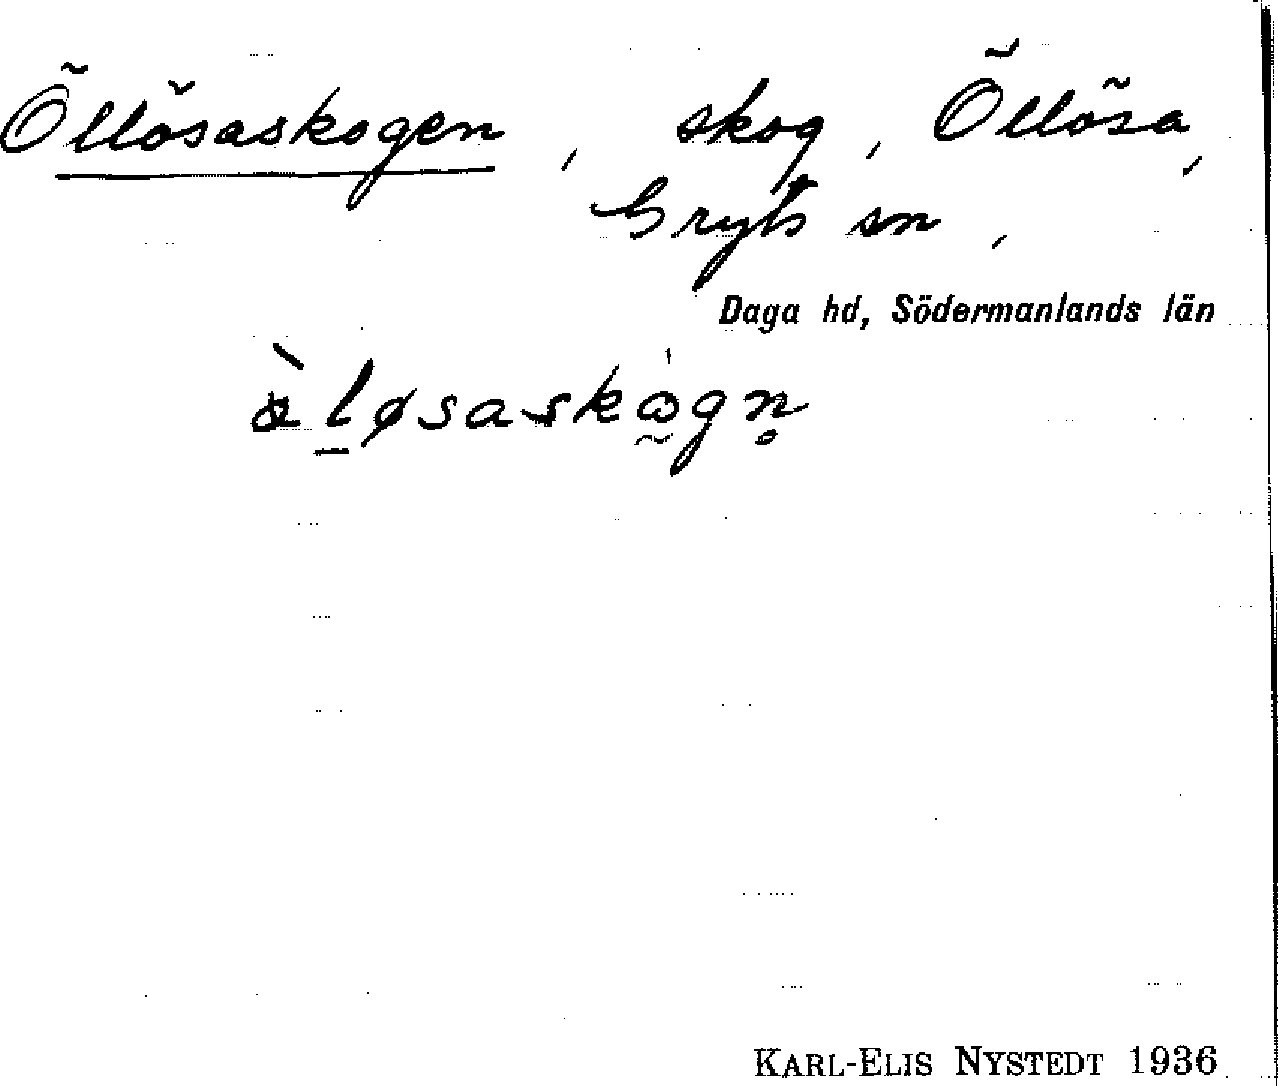 Öllösaskogen, skog, Öllösa,
Gryts sn,
Daga hd, Södermanlands län
ὰløsaskὼgn̥
KARL-ELIS NYSTEDT 1936